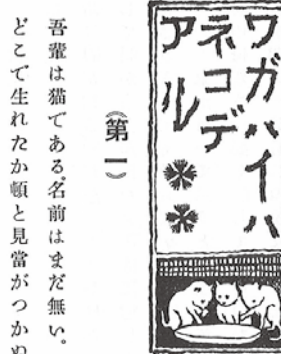 ワガハイハ
ネコデ
アル
《第一》
吾輩は猫である。名前はまだ無い。
どこで生れたか頓と見當がつかぬ